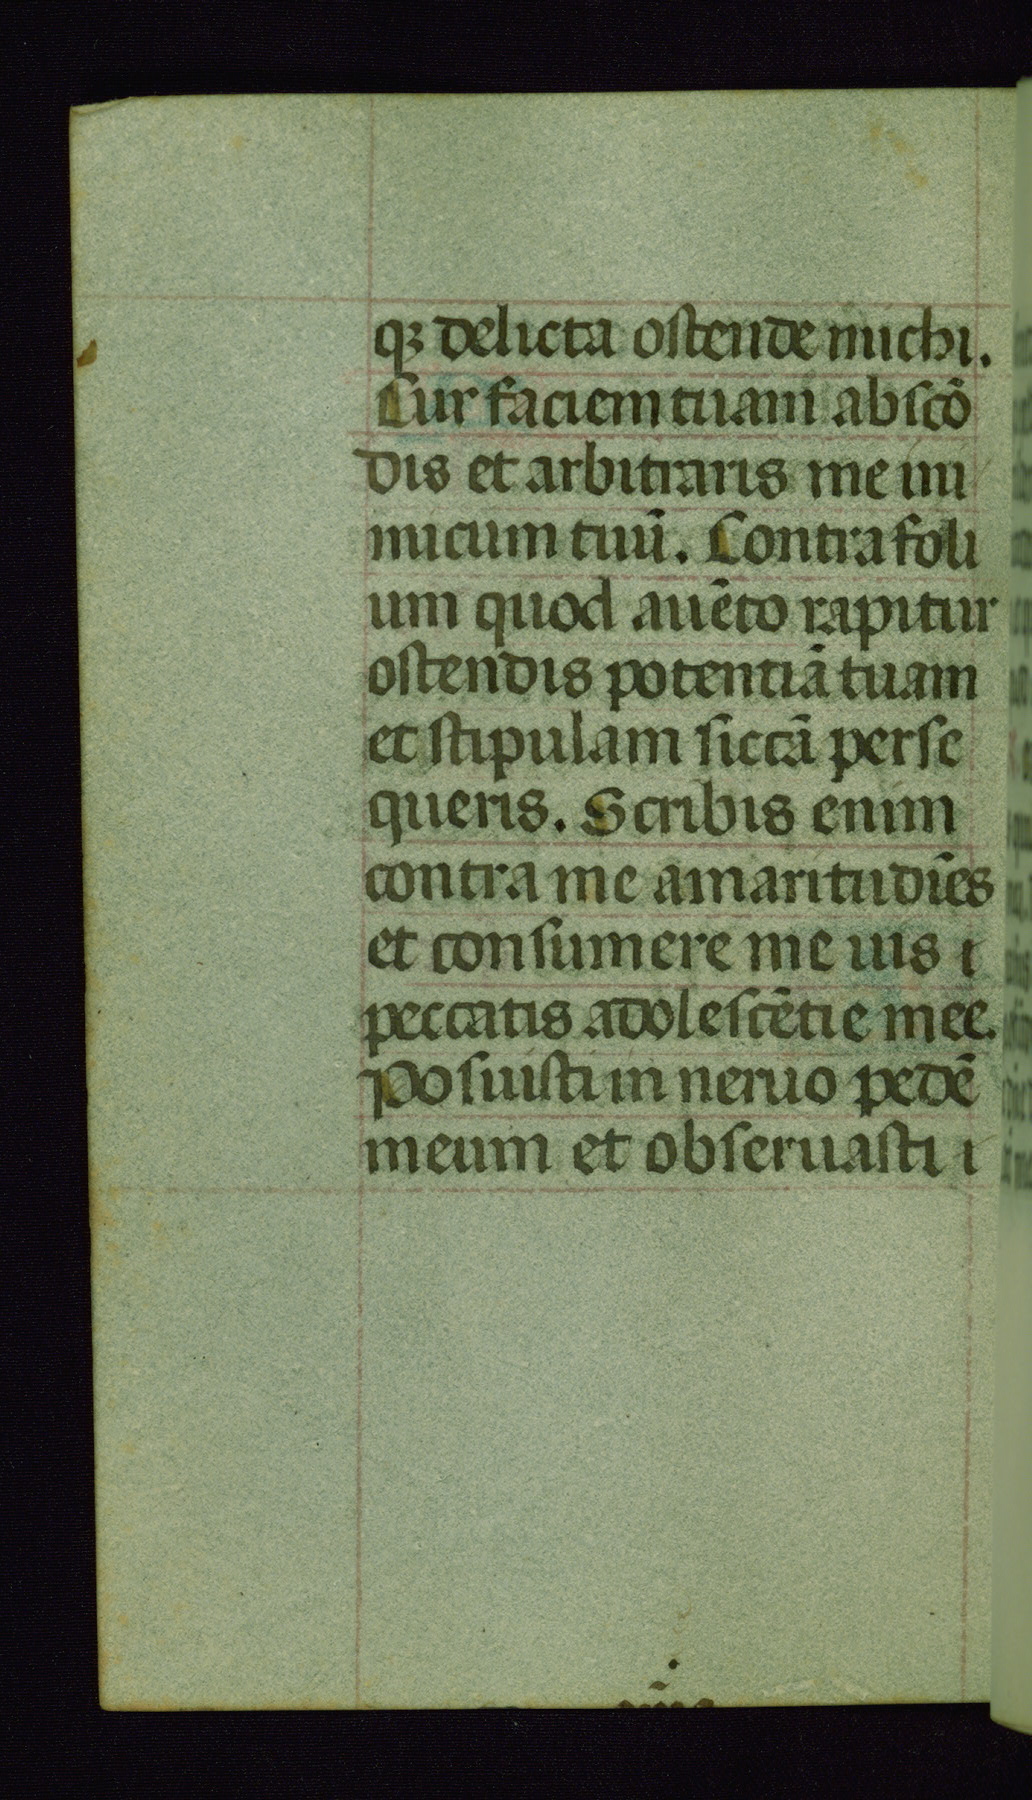 qꝫ delicta ostende michi.
Cur faciem tuam abscō
dis et arbitraris me ini
micum tuū. Contra foli
um quod auēto rapitur
ostendis potentiā tuam
et stipulam siccā perse
queris. Scribis enim
contra me amaritudīes
et consumere me uis i
peccatis adolescētie mee.
Posuisti in neruo pedē
meum et obseruasti i